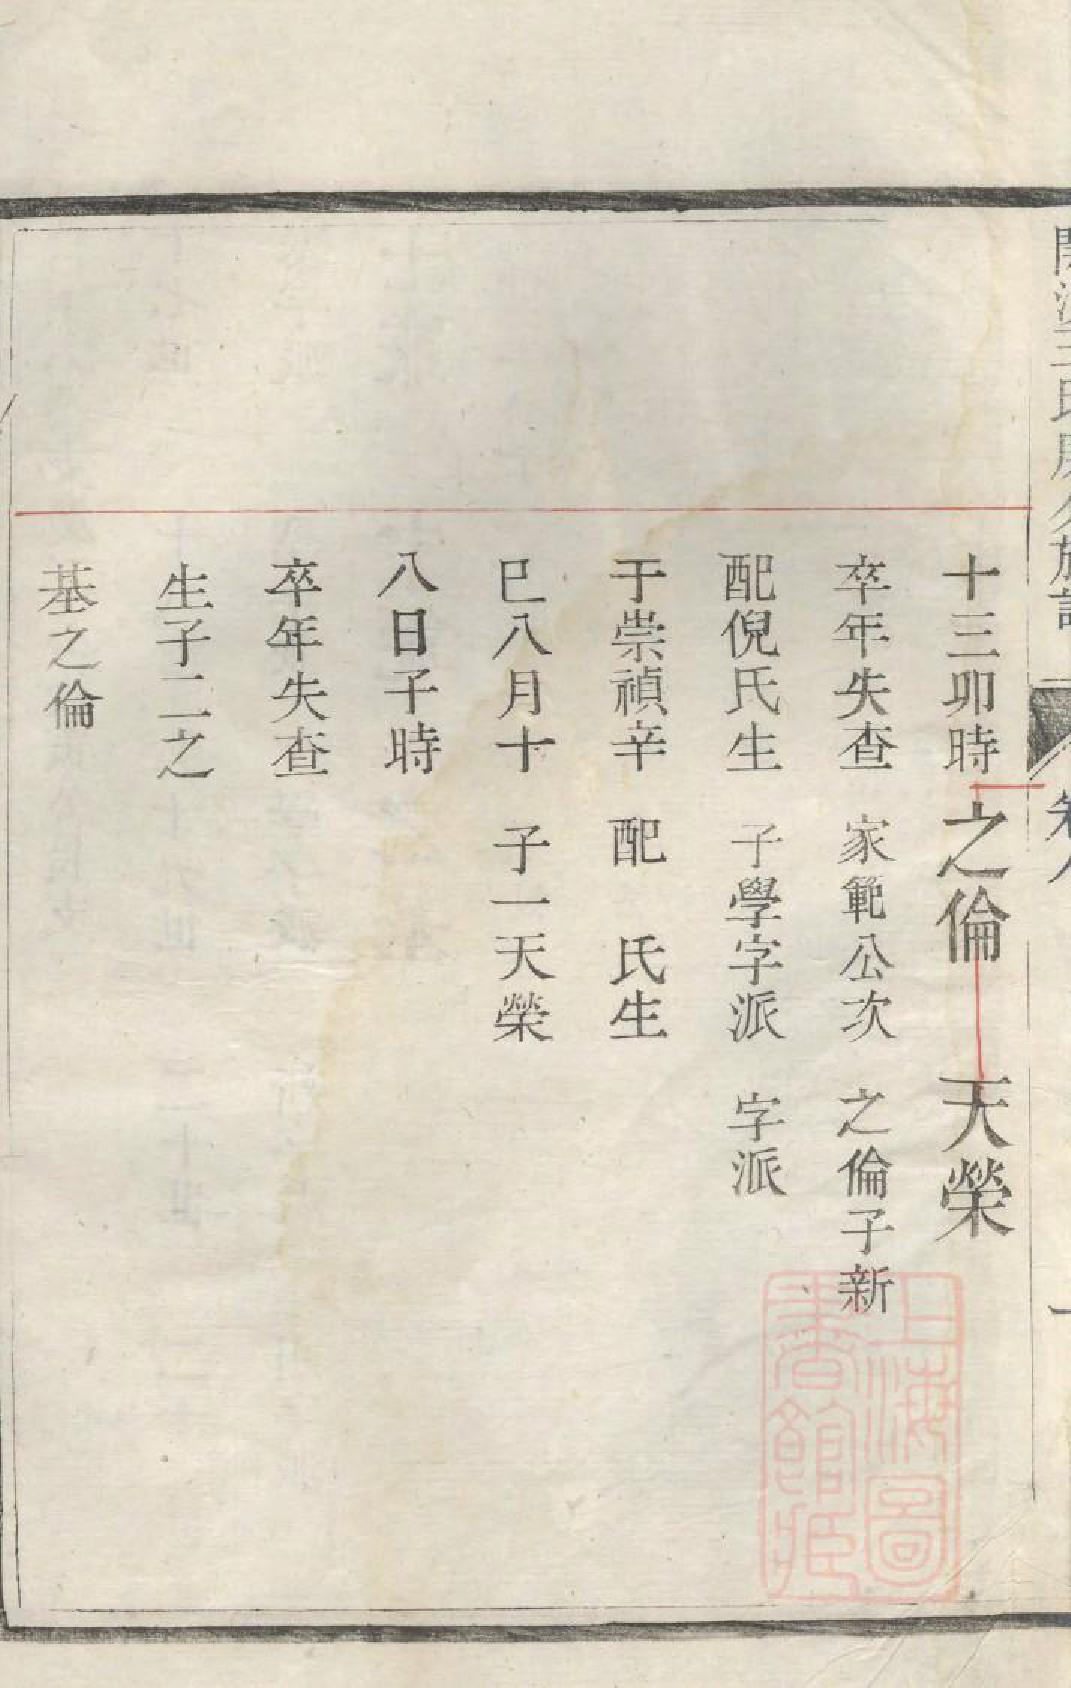 十三卯時
卒年失查
配倪氏生
于崇禎辛
巳八月十
八日子時
卒年失查
生子二之
基之倫
之倫
家範公次
子學字派
配　氏生
子一天榮
天榮
之倫子新
字派
上海圖
書館藏